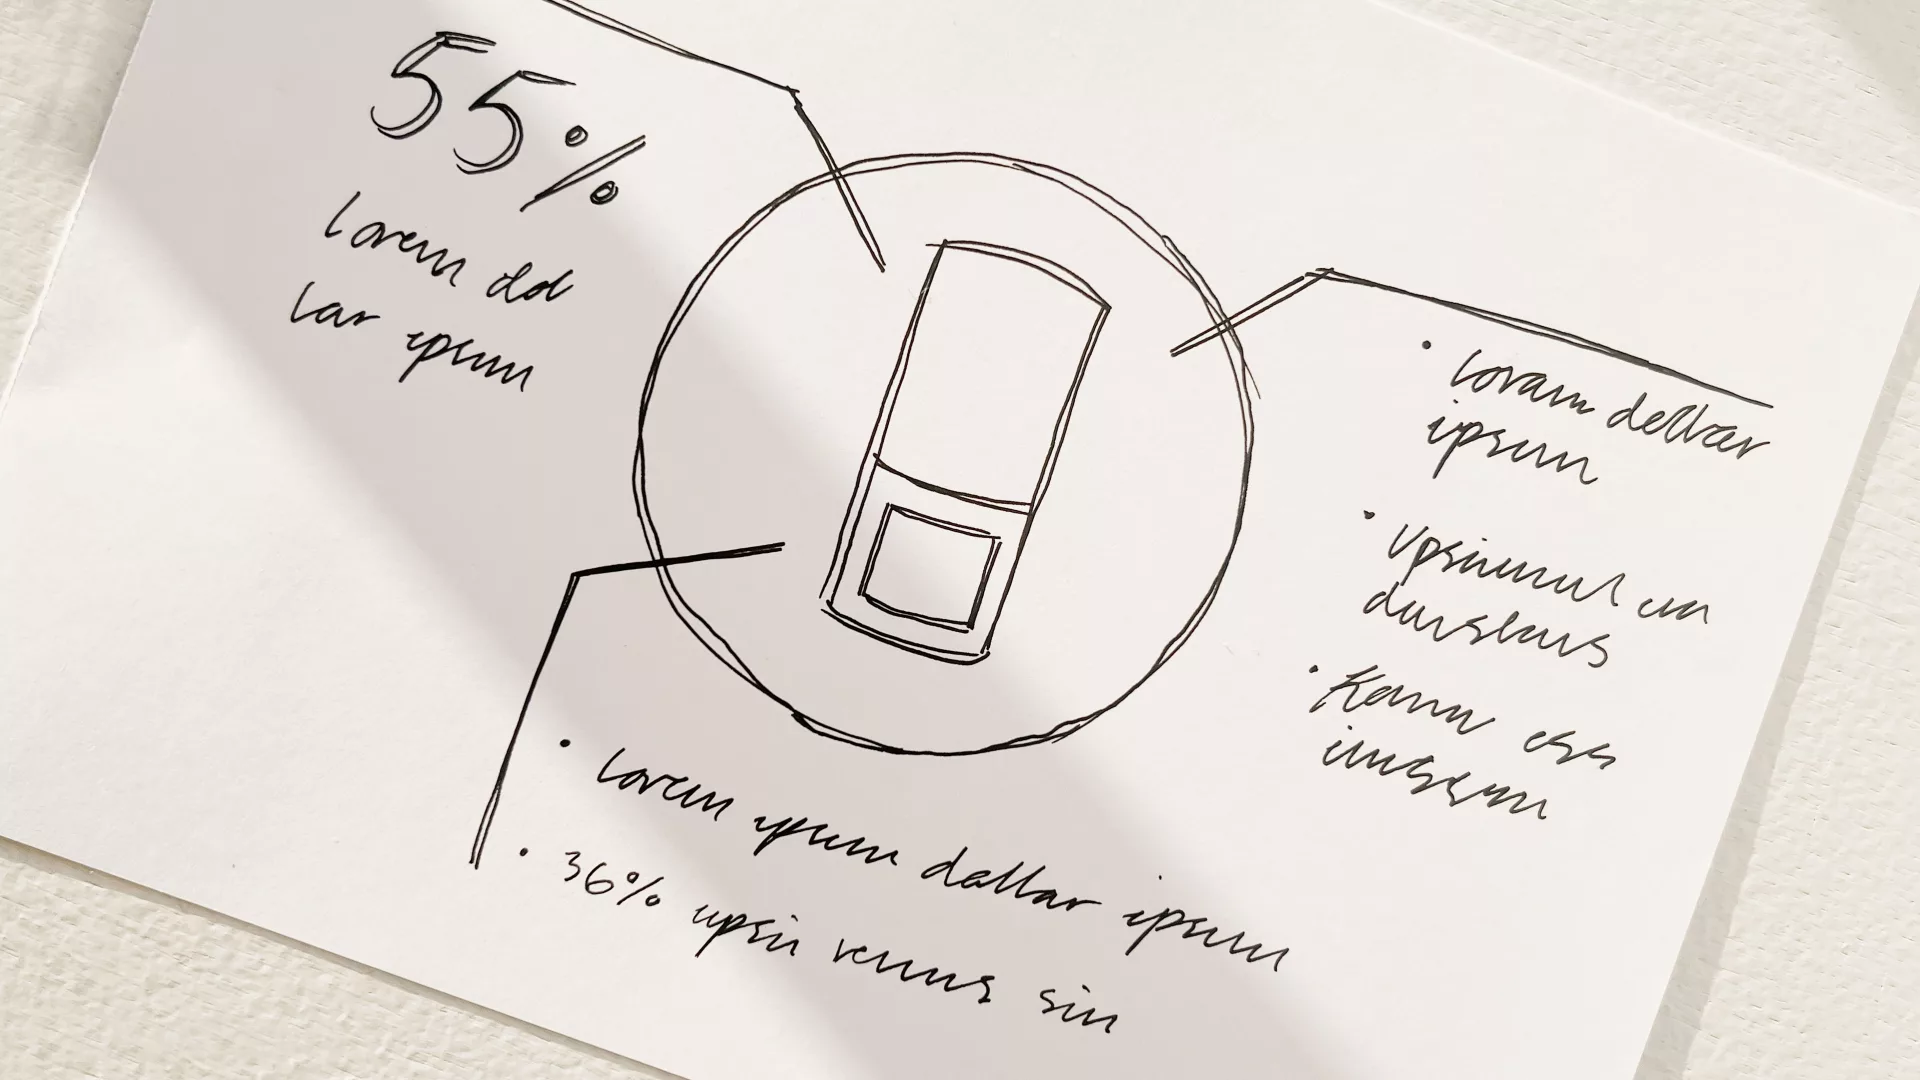 55%
Lorem dol
lar ipsum
• Loram dellar
ipsum
• Upsimul un
durslurs
• Kanu ess
imsem
• Lorem ipsum dollar ipsum
• 36% upsin venus sin